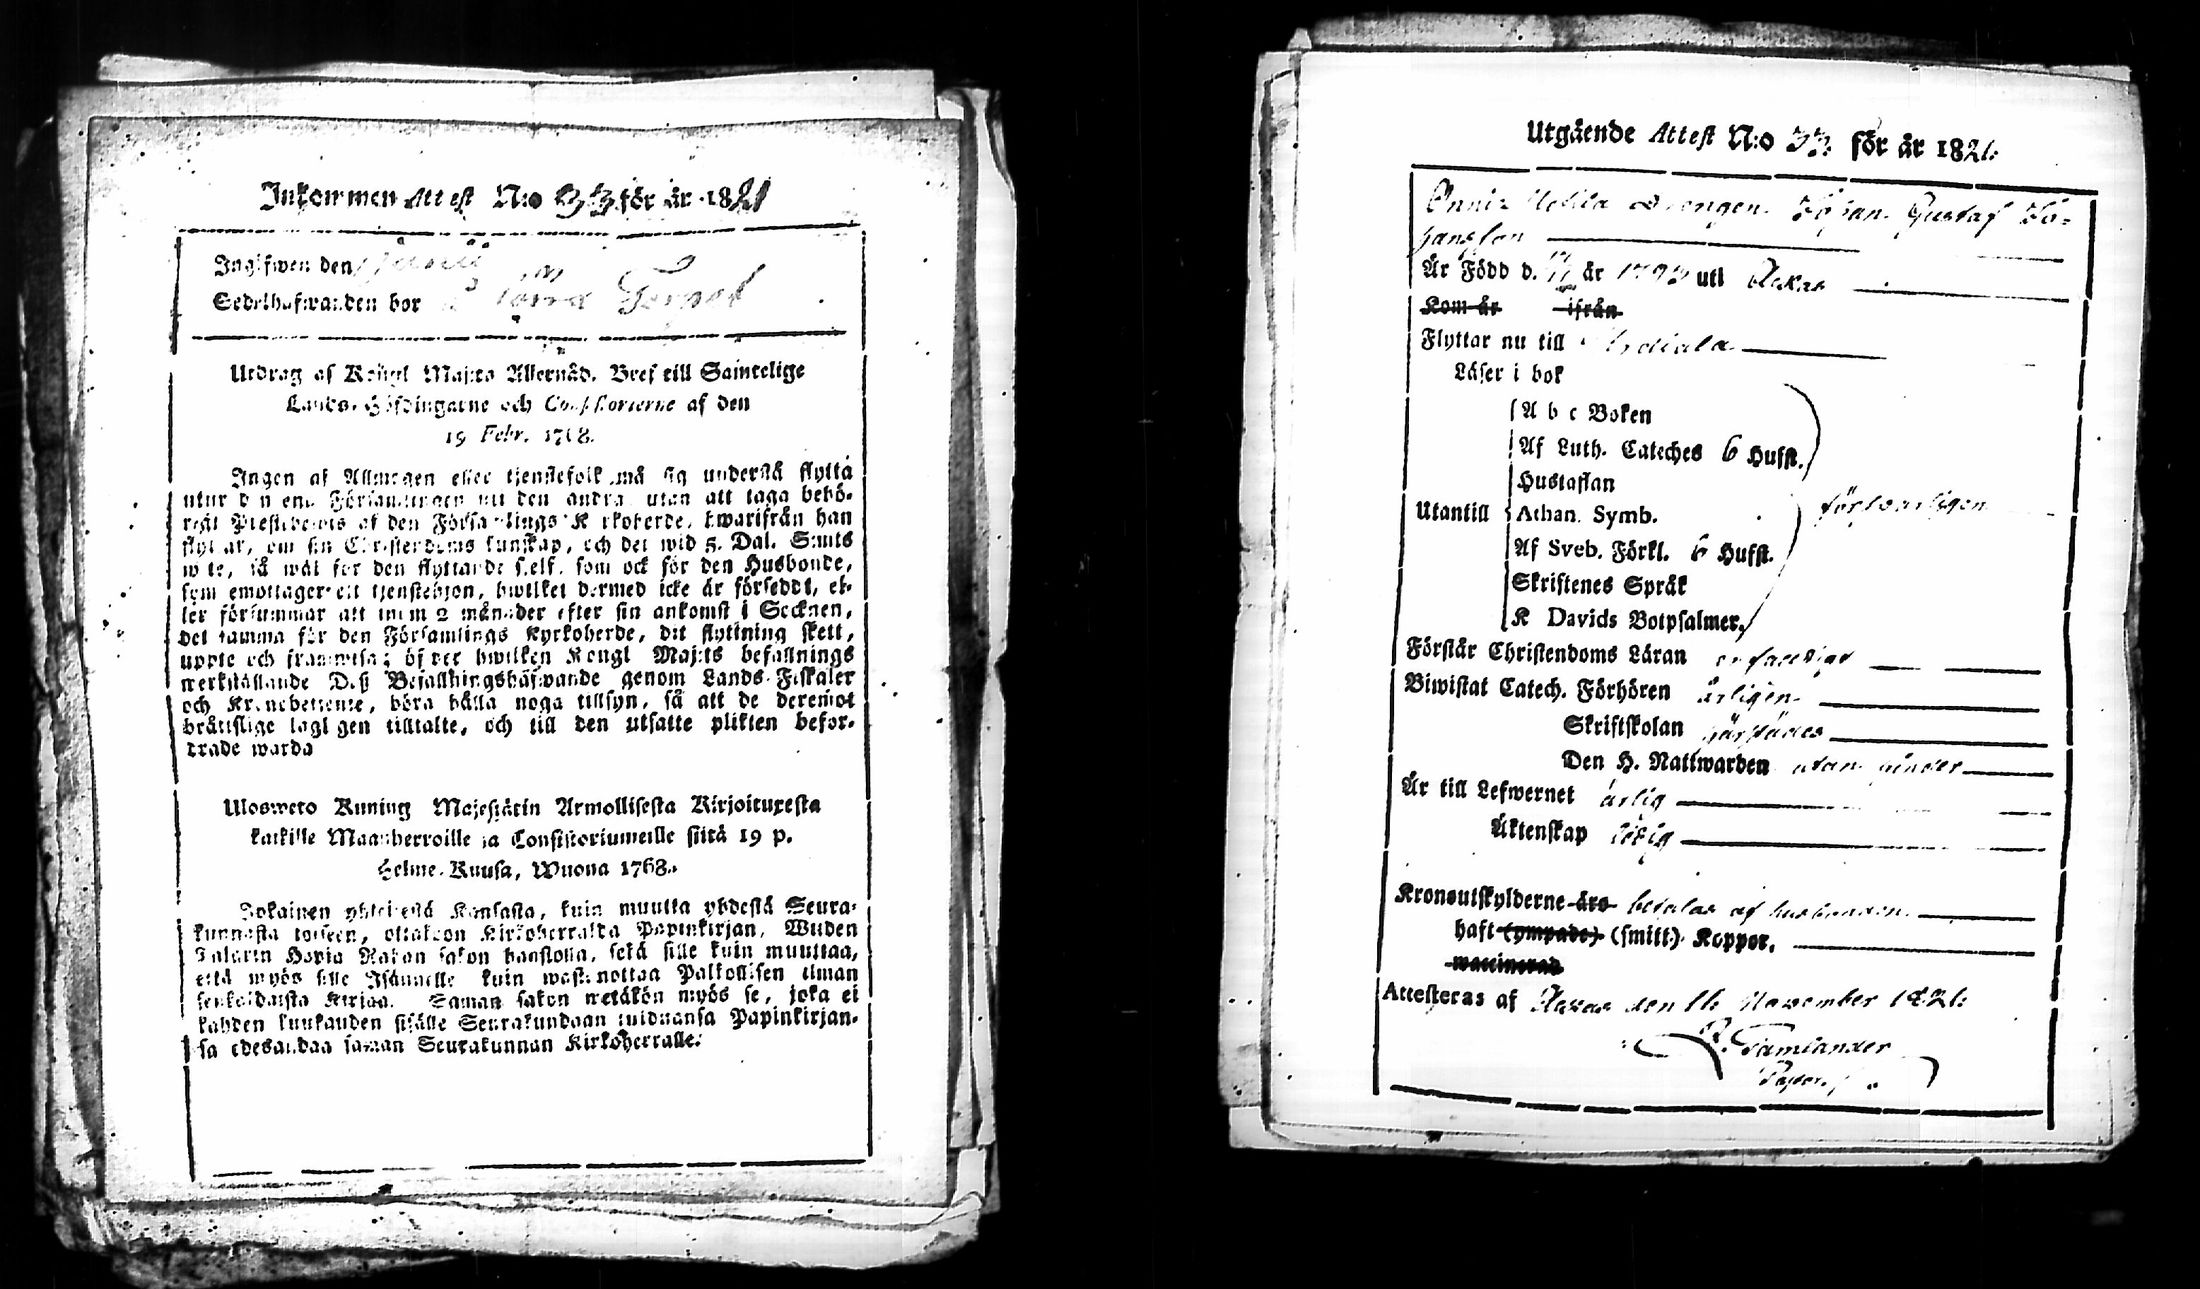 Inkommen Attest N:o 33 för år 1821
Ingifwen den
Sedelhafwanden bor Torp
Utdrag af Kongl Maj:ts Allernåd. Bref till Samtelige
Lands-Höfdingarne och Consistorierne af den
19 Febr. 1768.
Ingen af Allmogen eller tjenstefolk må sig understå flytta
utur den ena Församlingen uti den andra utan att taga behö-
rigt Prestbewis af den Församlings Kyrkoherde, hwarifrån han
flyttar, om sin Christendoms kunskap, och det wid 5. Dal. S:mts
wite, så wäl för den flyttande sjelf, som ock för den Husbonde,
som emottager ett tjenstehjon, hwilket dermed icke är försedt, el-
ler försummar att inom 2 månader efter sin ankomst i Socknen,
det samma för den Församlings Kyrkoherde, dit flyttning skett,
uppte och framwisa; öfwer hwilken Kongl Maj:ts befallnings
werkställande Deß Befallningshafwande genom Lands-Fiskaler
och Kronobetjente, böra hålla noga tillsyn, så att de deremot
bråttslige lagligen tilltalte, och till den utsatte plikten befor-
drade warda
Ulosweto Kuning Majestätin Armollisesta Kirjoituxesta
kaikille Maanherroille ja Consistoriumeille siitä 19 p.
Helme-Kuusa, Wuona 1768.
Jokainen yhteisestä Kansasta, kuin muutta yhdestä Seura-
kunnasta toiseen, ottakoon Kirkoherralta Papinkirjan, Wiiden
Talarin Hopia Rahan sakon haastolla, sekä sille kuin muuttaa,
että myös sille Isännelle kuin wastanottaa Palkollisen ilman
senkaldaista Kirjaa. Saman sakon wetäkön myös se, joka ei
kahden kuukauden sisälle Seurakundaan tulduansa Papinkirjan-
sa edesandaa saman Seurakunnan Kirkoherralle.
Utgående Attest N:o 33 för år 1821.
Drengen Johan Gustaf Jo-
hansson
Är Född d. år 1793 uti Ackas
Kom år ifrån
Flyttar nu till Urdiala
Läser i bok
A b c Boken
Af Luth. Cateches 6 Hufst.
Hustaflan
Utantill Athan. Symb. försvarligen
Af Sveb. Förkl. 6 Hufst.
Skriftenes Språk
K Davids Botpsalmer.
Förstår Christendoms Läran enfaldigt
Biwistat Catech. Förhören årligen
Skriftskolan härstädes
Den H. Nattwarden utan hinder
Är till Lefwernet ärlig
Äktenskap ledig
Kronoutskylderne äro betalas af husbonden
haft (ympade) (smitt) Koppor.
waccinerad
Attesteras af Ackas den 16 November 1821.
Tamlander
Pastor